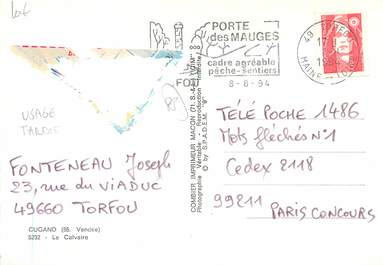 PORTE
des MAUGES
cadre agréable
pêche-sentiers
8-8-94
49
1994
USAGE
TARDIF
TÉLÉ POCHE 1486
Mots fléchés N°1
Cedex 2118
99211 PARIS CONCOURS
FONTENEAU Joseph
23, rue du VIADUC
49660 TORFOU
CUGAND (85. Vendée)
5232 - Le Calvaire
COMBIER IMPRIMEUR MACON (71. S.-&-L.) "CIM"
Photographie Véritable - Reproduction Interdite
© by S.P.A.D.E.M.